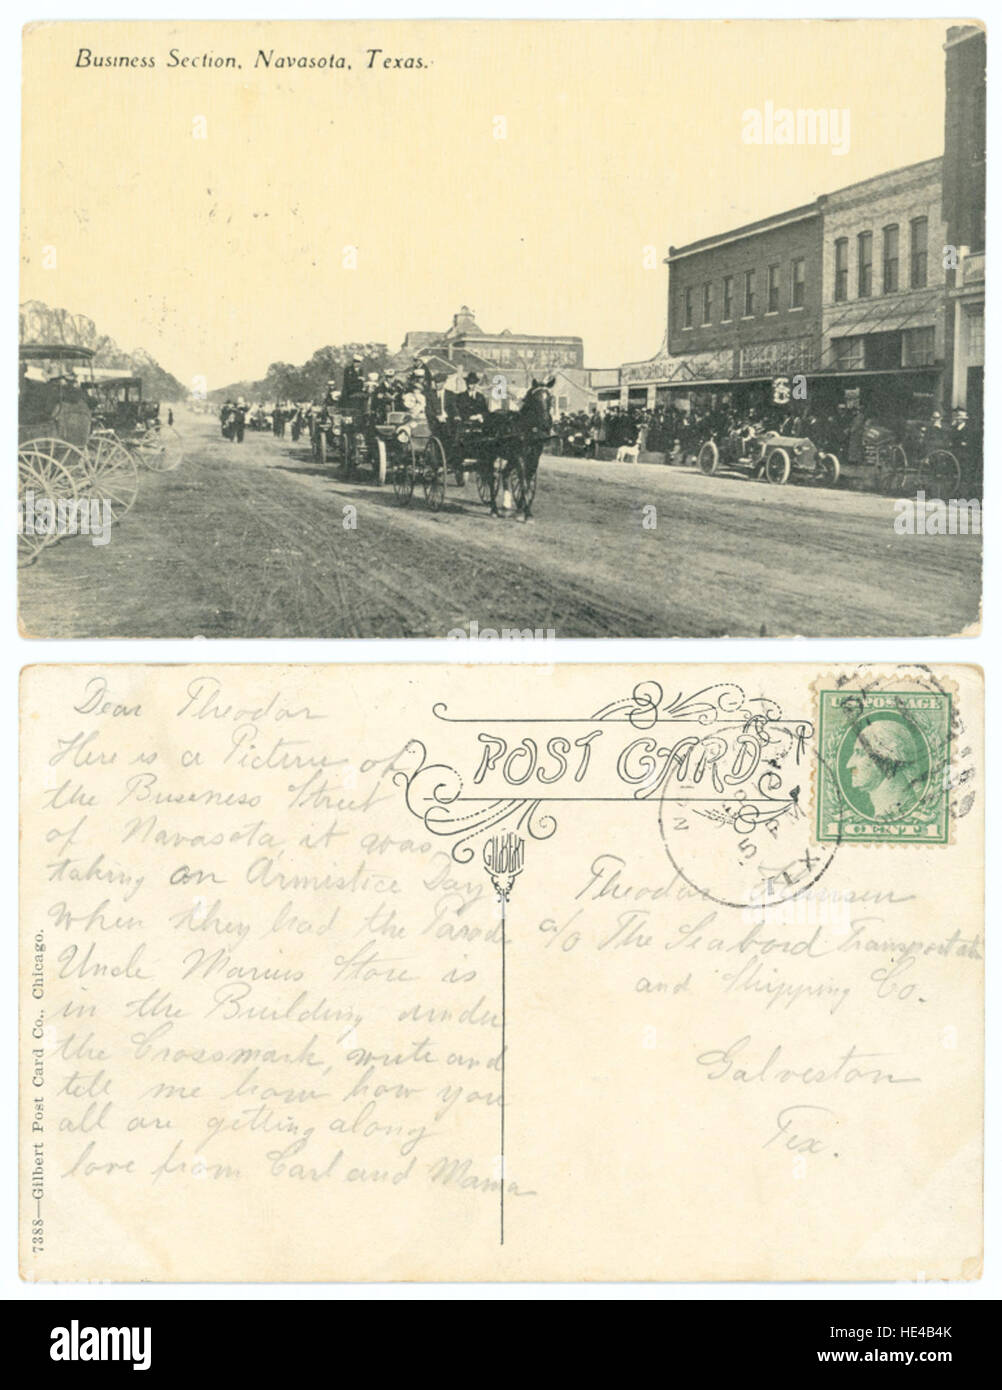 Business Section, Navasota, Texas.
alamy
Dear Theodor
Here is a Picture of
the Business Street
of Navasota it was
taking on Armestice Day
when they had the Parade
Uncle Marius Store is
in the Building under
the Crossmark, write and
tell me how you
all are getting along
love from Carl and Mama
7388—Gilbert Post Card Co., Chicago.
POST CARD
GILBERT
U.S. POSTAGE
1 CENT 1
5 PM
TEX
Theodor
c/o The Seabord Transportation
and Shipping Co.
Galveston
Tex.
alamy
Image ID: HE4B4K
www.alamy.com